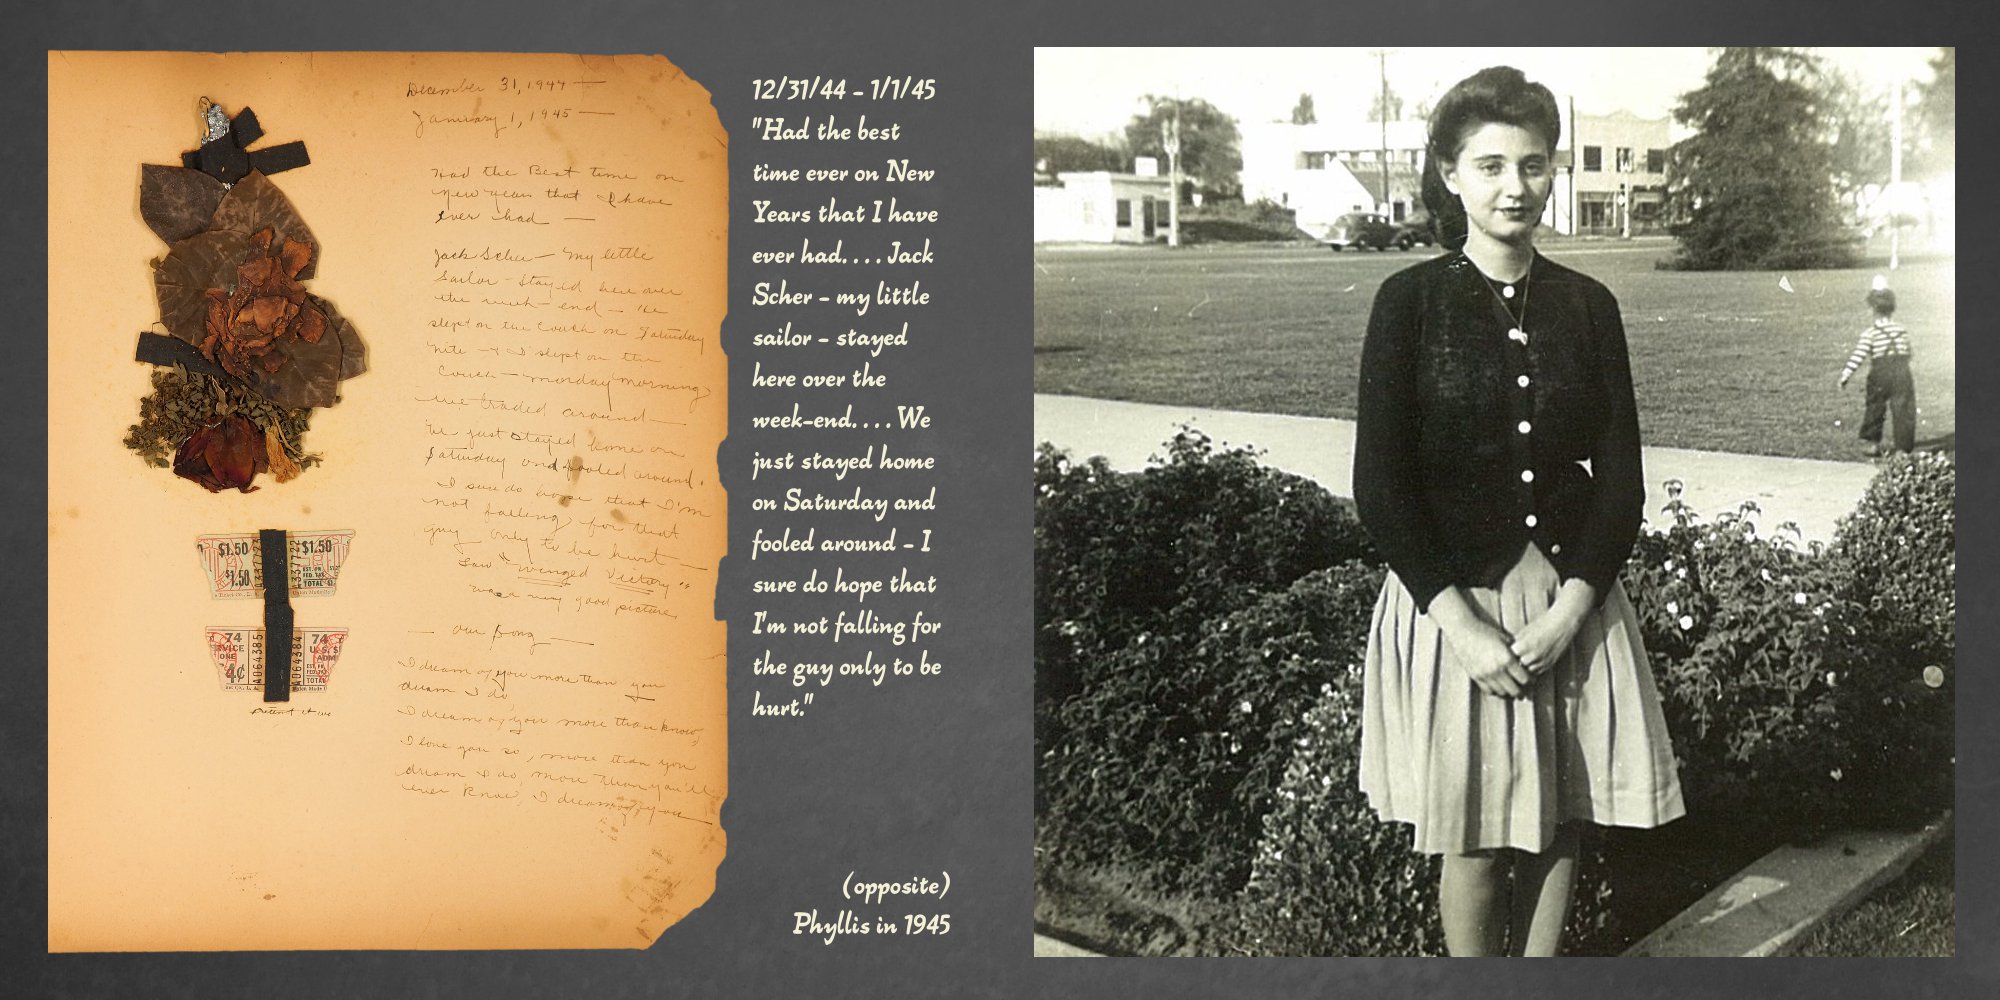 December 31, 1944 —
January 1, 1945 —
Had the Best time on
New Years that I have
ever had —
Jack Scher — My little
Sailor — Stayed here over
the week-end — He
slept on the couch on Saturday
nite — & I slept on the
couch — Monday morning
we traded around —
We just stayed home on
Saturday and fooled around.
I sure do hope that I'm
not falling for that
guy only to be hurt —
Saw "Winged Victory"
was a very good picture
— our song —
I dream of you more than you
dream I do
I dream of you more than know,
I love you so, more than you
dream I do, more than you'll
ever know, I dream of you —
$1.50 $1.50
$1.50
TOTAL
74 74
RVICE U.S.
ONE ADM
4¢
A064385 A064384
12/31/44 - 1/1/45
"Had the best
time ever on New
Years that I have
ever had. . . . Jack
Scher - my little
sailor - stayed
here over the
week-end. . . . We
just stayed home
on Saturday and
fooled around - I
sure do hope that
I'm not falling for
the guy only to be
hurt."
(opposite)
Phyllis in 1945